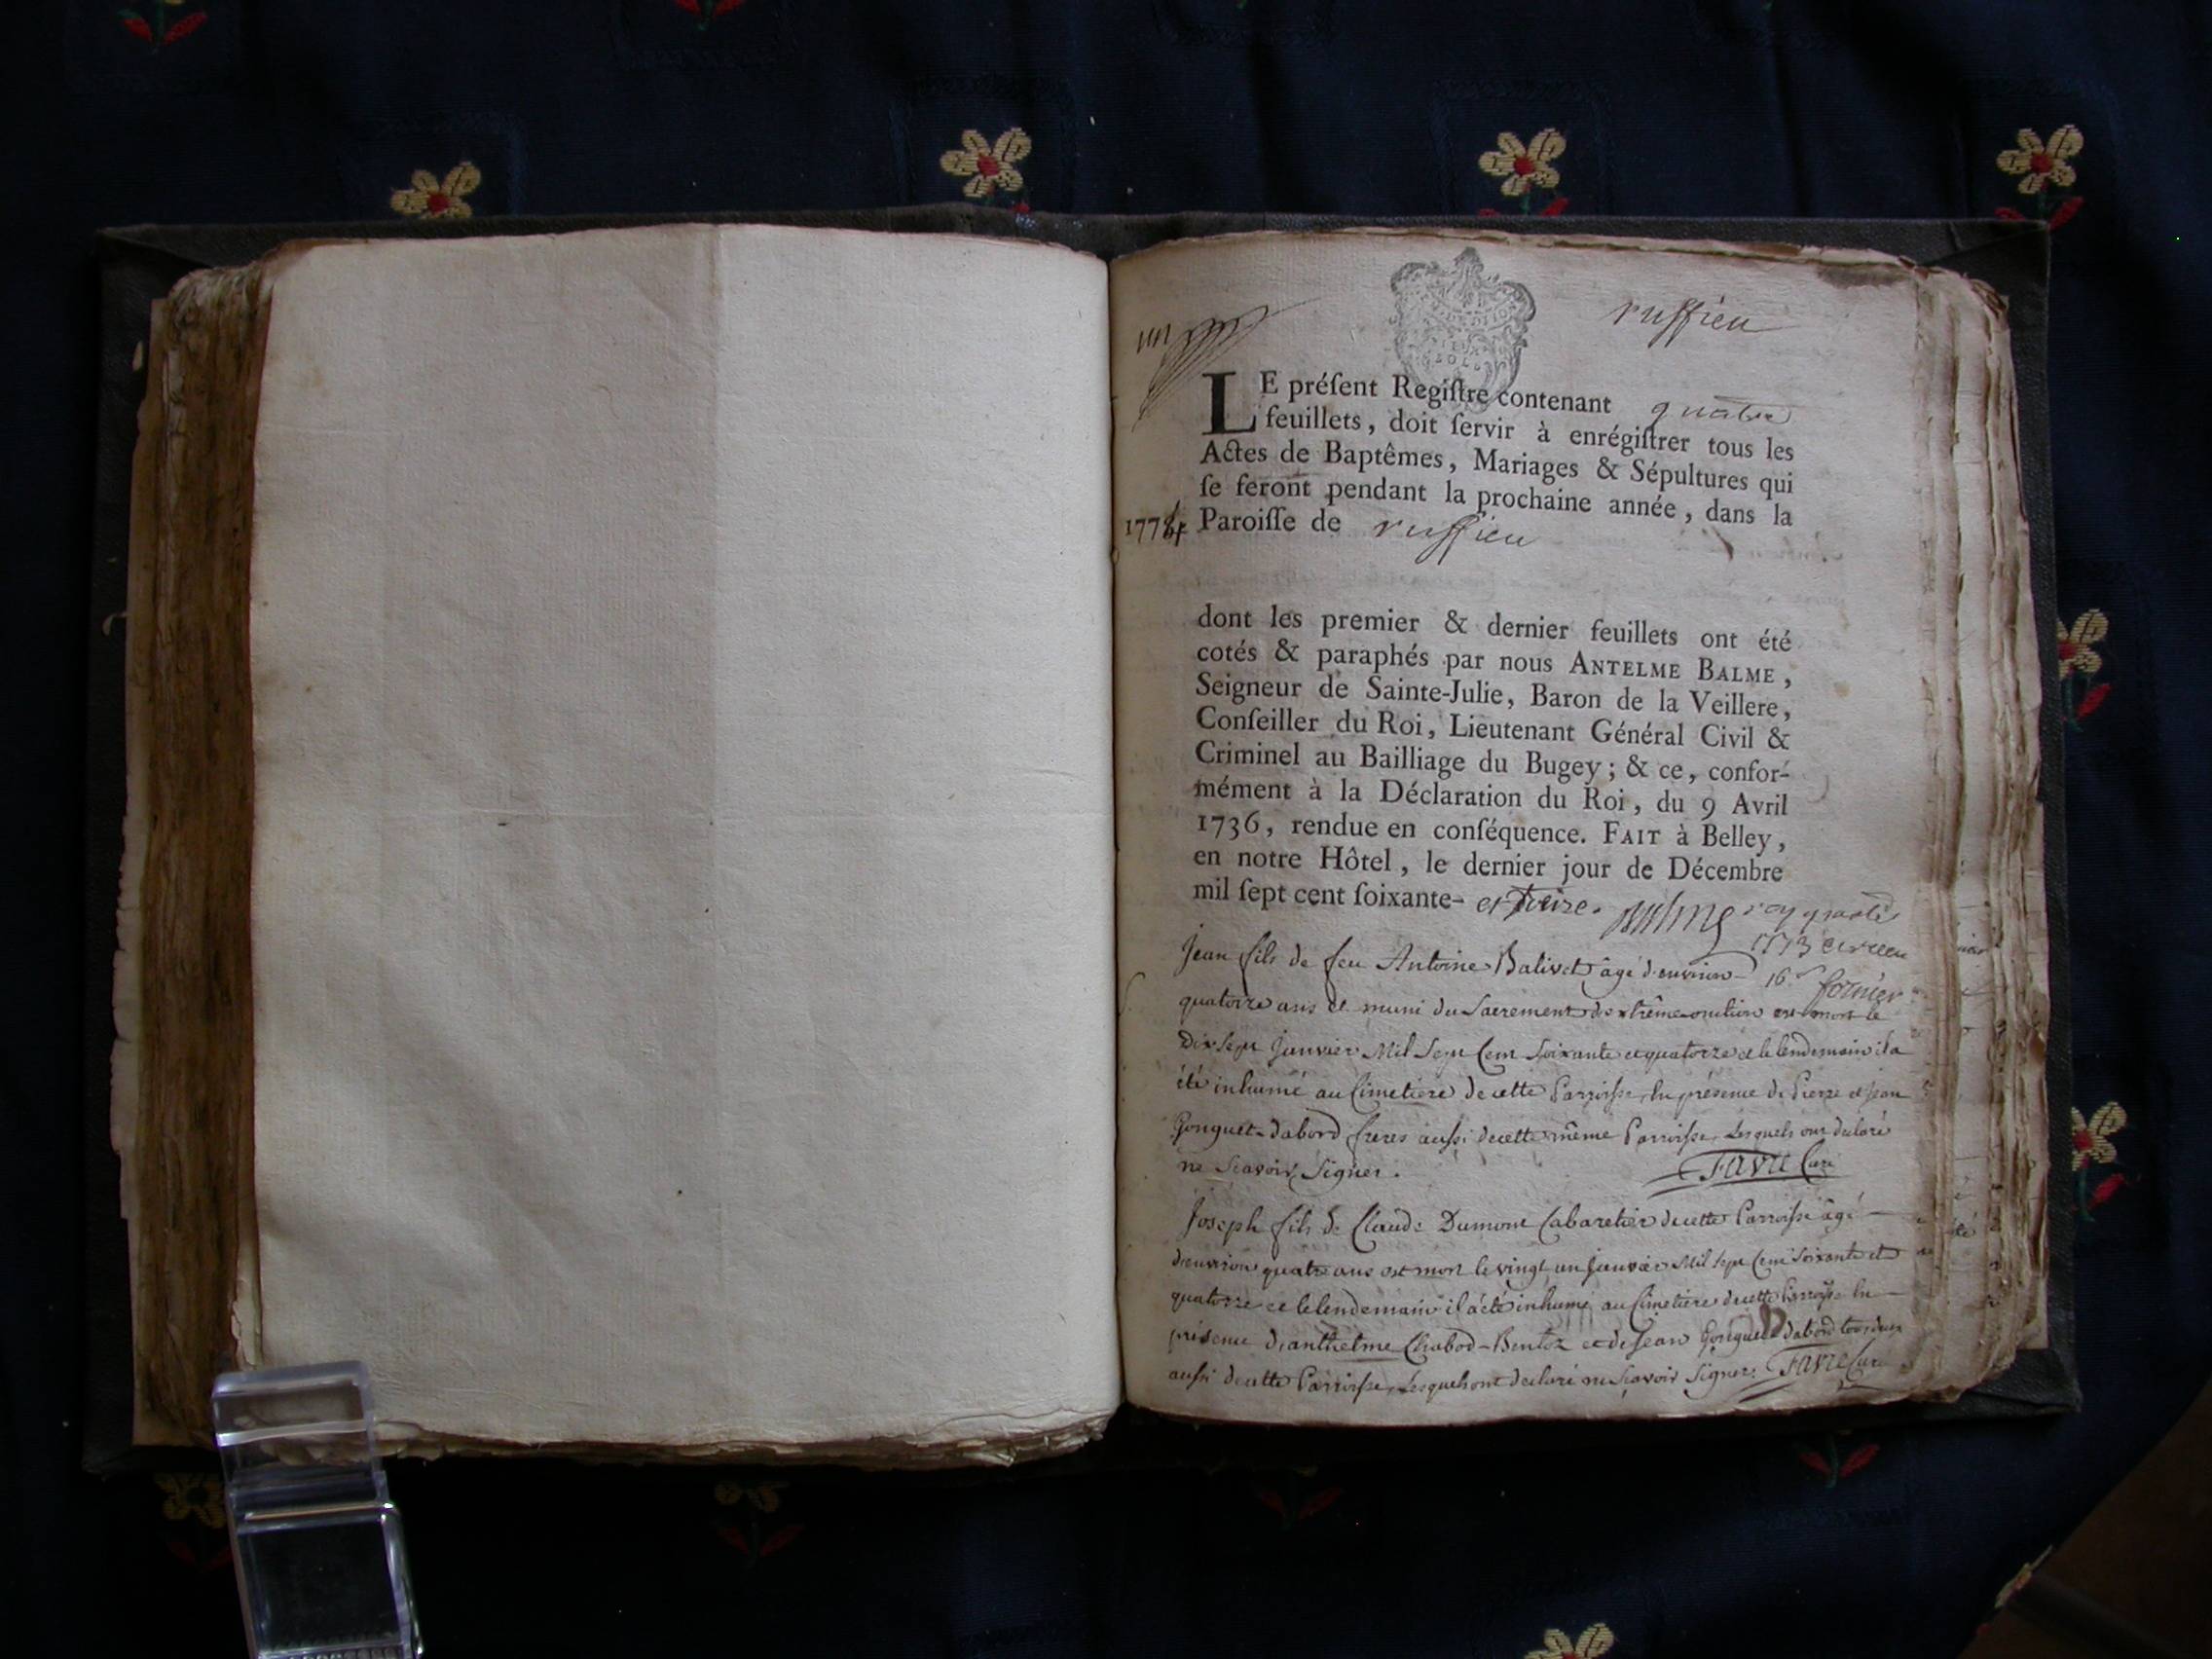 un
ruffieu
LE préſent Regiſtre contenant quatre
feuillets, doit ſervir à enrégiſtrer tous les
Actes de Baptêmes, Mariages & Sépultures qui
ſe feront pendant la prochaine année, dans la
1774 Paroiſſe de ruffieu
dont les premier & dernier feuillets ont été
cotés & paraphés par nous ANTELME BALME,
Seigneur de Sainte-Julie, Baron de la Veillere,
Conſeiller du Roi, Lieutenant Général Civil &
Criminel au Bailliage du Bugey; & ce, confor-
mément à la Déclaration du Roi, du 9 Avril
1736, rendue en conſéquence. FAIT à Belley,
en notre Hôtel, le dernier jour de Décembre
mil ſept cent ſoixante- et treize. Balme
1773
Jean fils de feu Antoine Balivet âgé d'environ
quatorze ans et muni du Sacrement d'extrême-onction est mort le
Dix Sept Janvier Mil Sept Cent Soixante et quatorze et le lendemain il a
été inhumé au Cimetiere de cette Parroisse, En présence de Pierre et Jean
Gonguet-dabord freres aussi de cette même Parroisse, Lesquels ont déclaré
ne Scavoir Signer. Favre Curé
Joseph fils de Claude Dumont Cabaretier de cette Parroisse âgé
d'environ quatre ans est mort le vingt un Janvier Mil Sept Cent Soixante et
quatorze et le lendemain il a été inhumé au Cimetiere de cette Parroisse En
présence d'anthelme Chabod-Bentoz et de Jean Gonguet dabord tous deux
aussi de cette Parroisse, Lesquels ont declaré ne Scavoir Signer. Favre Curé